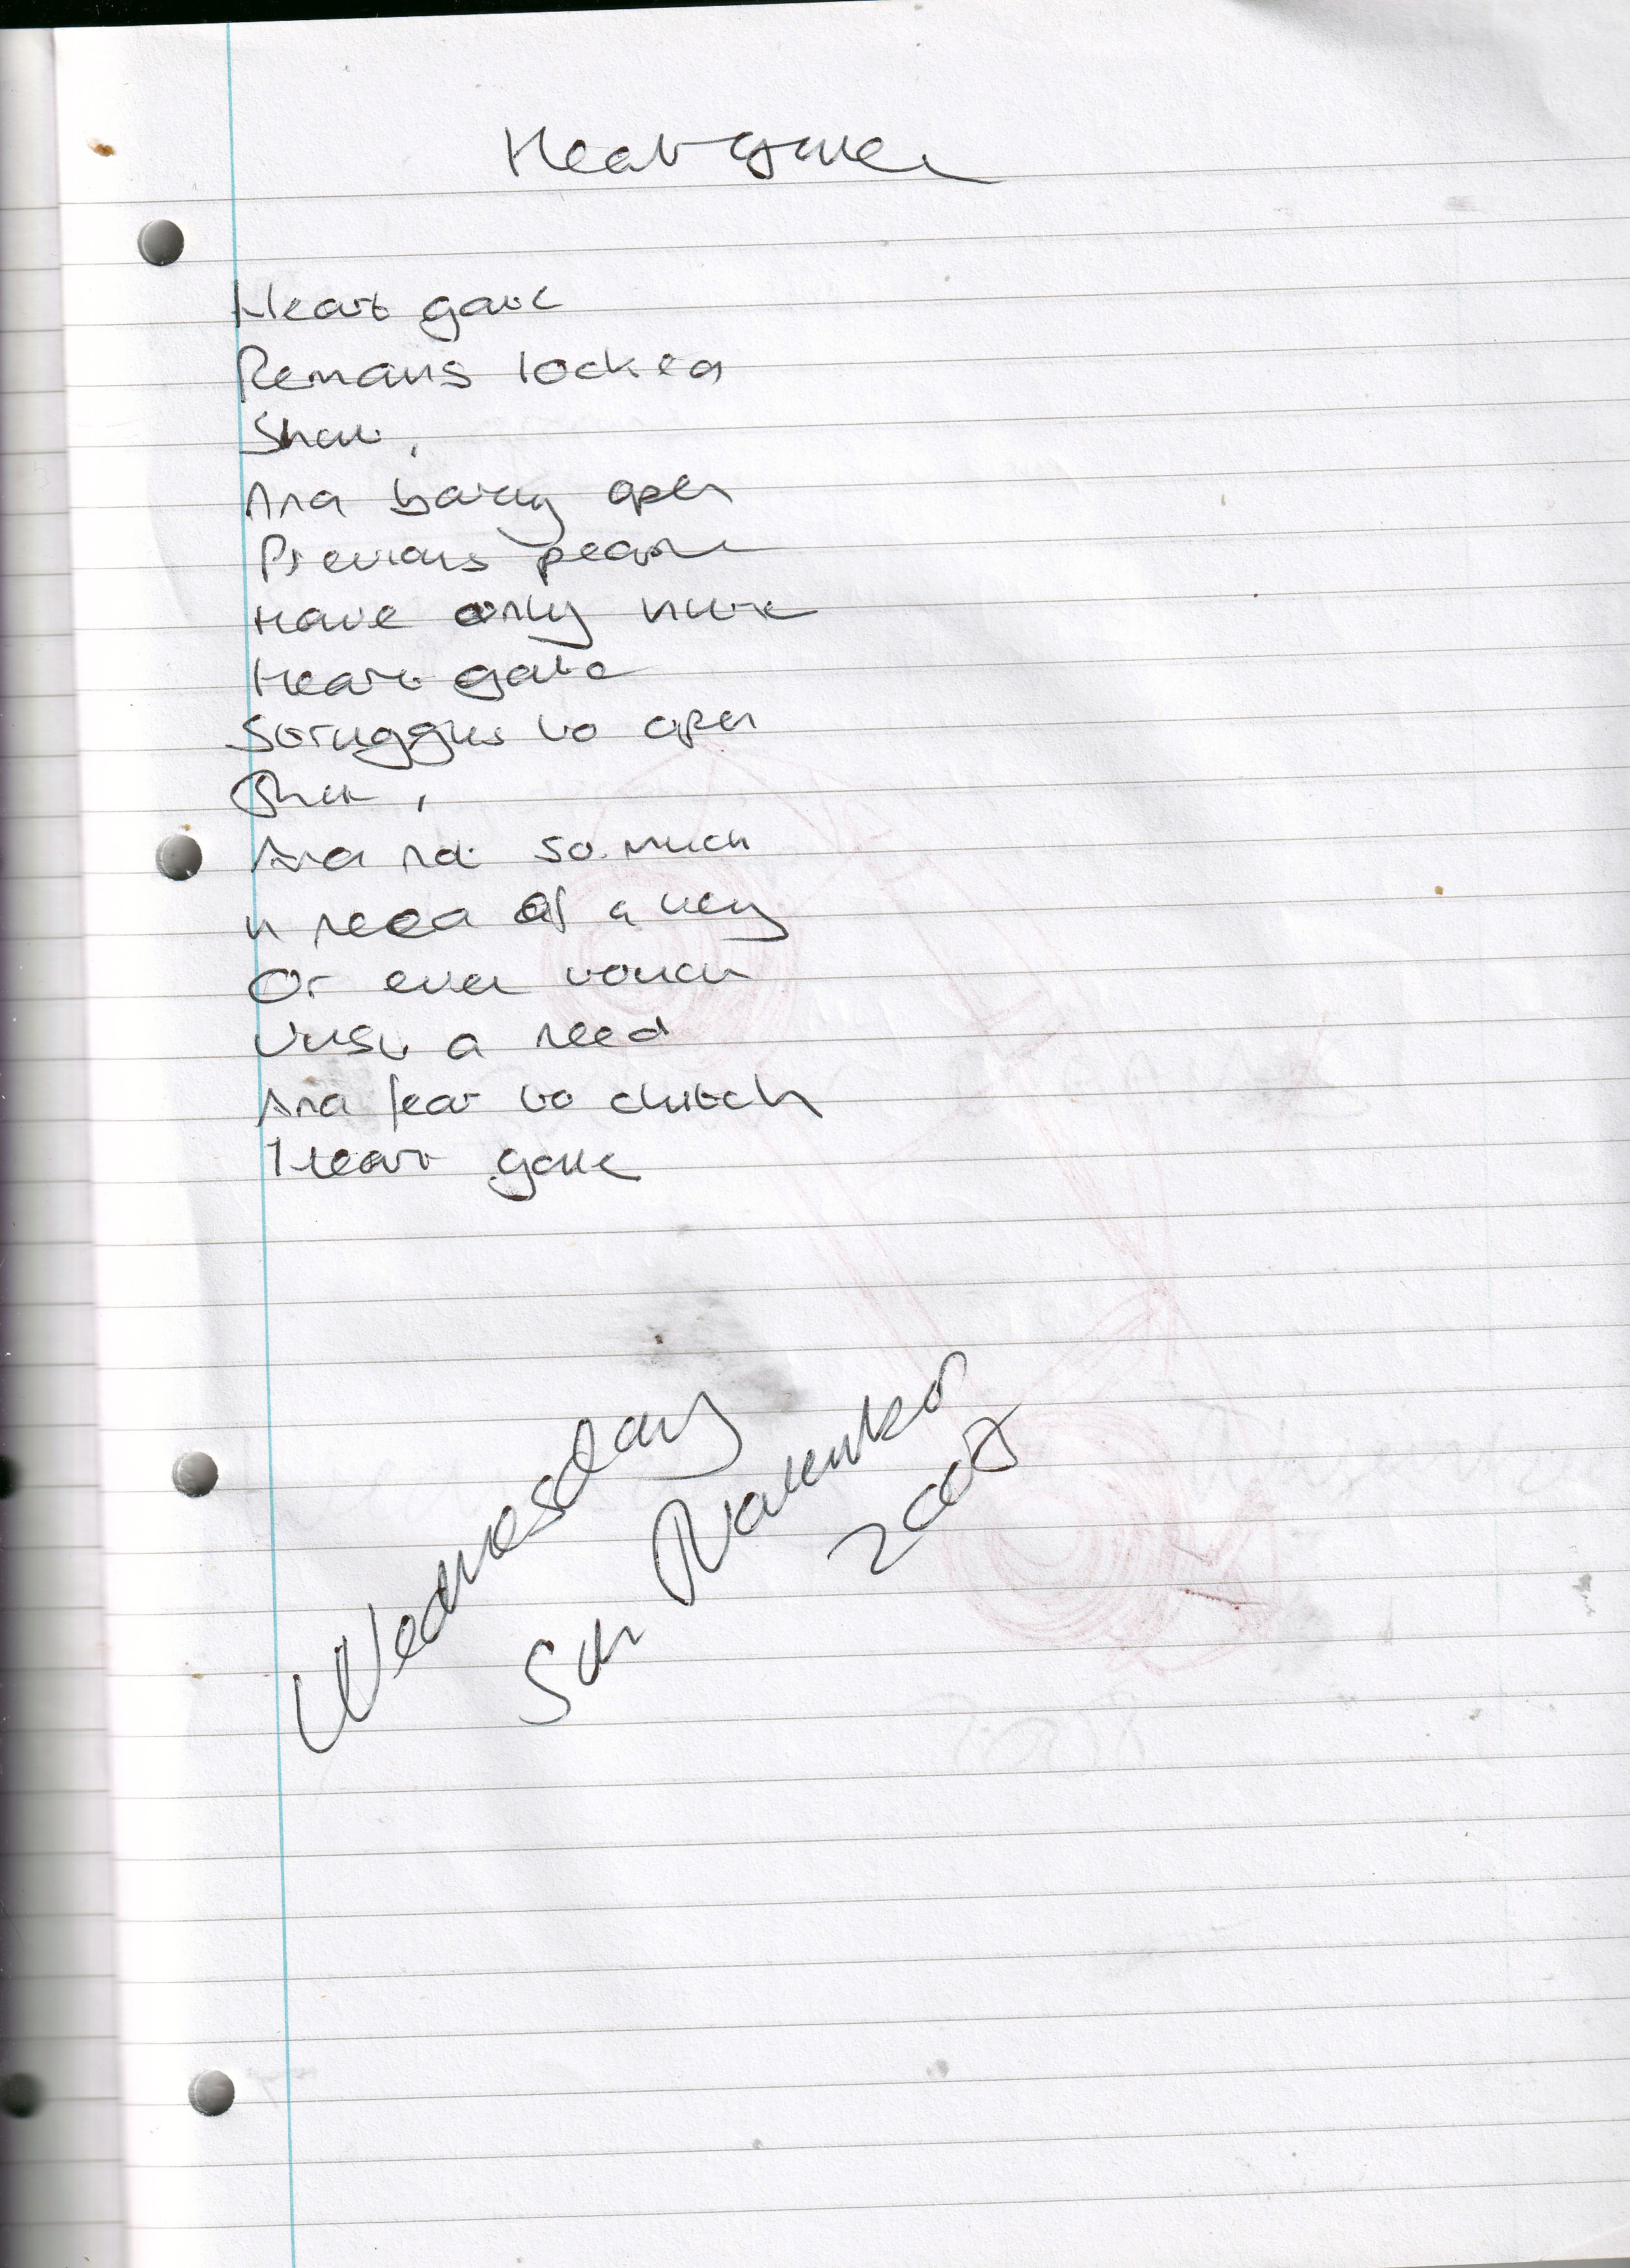 Heart gate
Heart gate
Remains locked
Shut,
And barely open
Previous people
Have only hurt
Heart gate
Struggles to open
Shut,
And not so much
in need of a key
Or even touch
Just a need
And fear to clutch
Heart gate
Wednesday
5th November
2007